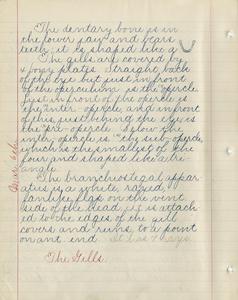 The dentary bone is in
the lower jaw and bears
teeth; it is shaped like a
The gills are covered by
4 bony plates. Straight back
of the eye but just in front
of the operculum is the opercle.
Just in front of the opercle is
the inter-opercle, and in front
of this, just behind the eye is
the pre-opercle. Below the
inter-opercle is the sub-opercle,
which is the smallest of the
four and shaped like a tri-
angle.
The branchiostegal appar-
atus is a white, rayed,
fanlike flap on the vent.
side of the head. It is attach-
ed to the edges of the gill
covers and runs to a point
on ant. end. It has 7 rays.
The Gills.